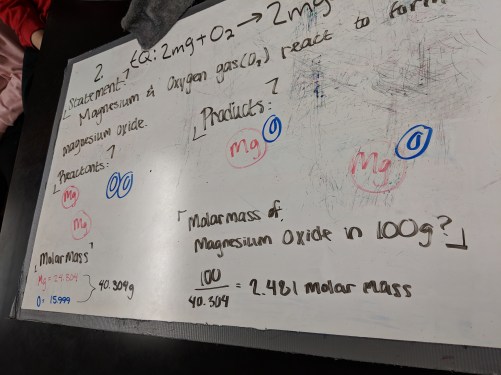 2. EQ: 2mg + O₂ → 2mg
Statement:
Magnesium & Oxygen gas (O₂) react to form
magnesium oxide.
Reactants:
Products:
Mg
OO
Mg
MgO
MgO
Molar Mass
Mg = 24.304
O = 15.999
40.304g
Molar mass of
Magnesium Oxide in 100g?
100
40.304
= 2.481 molar mass